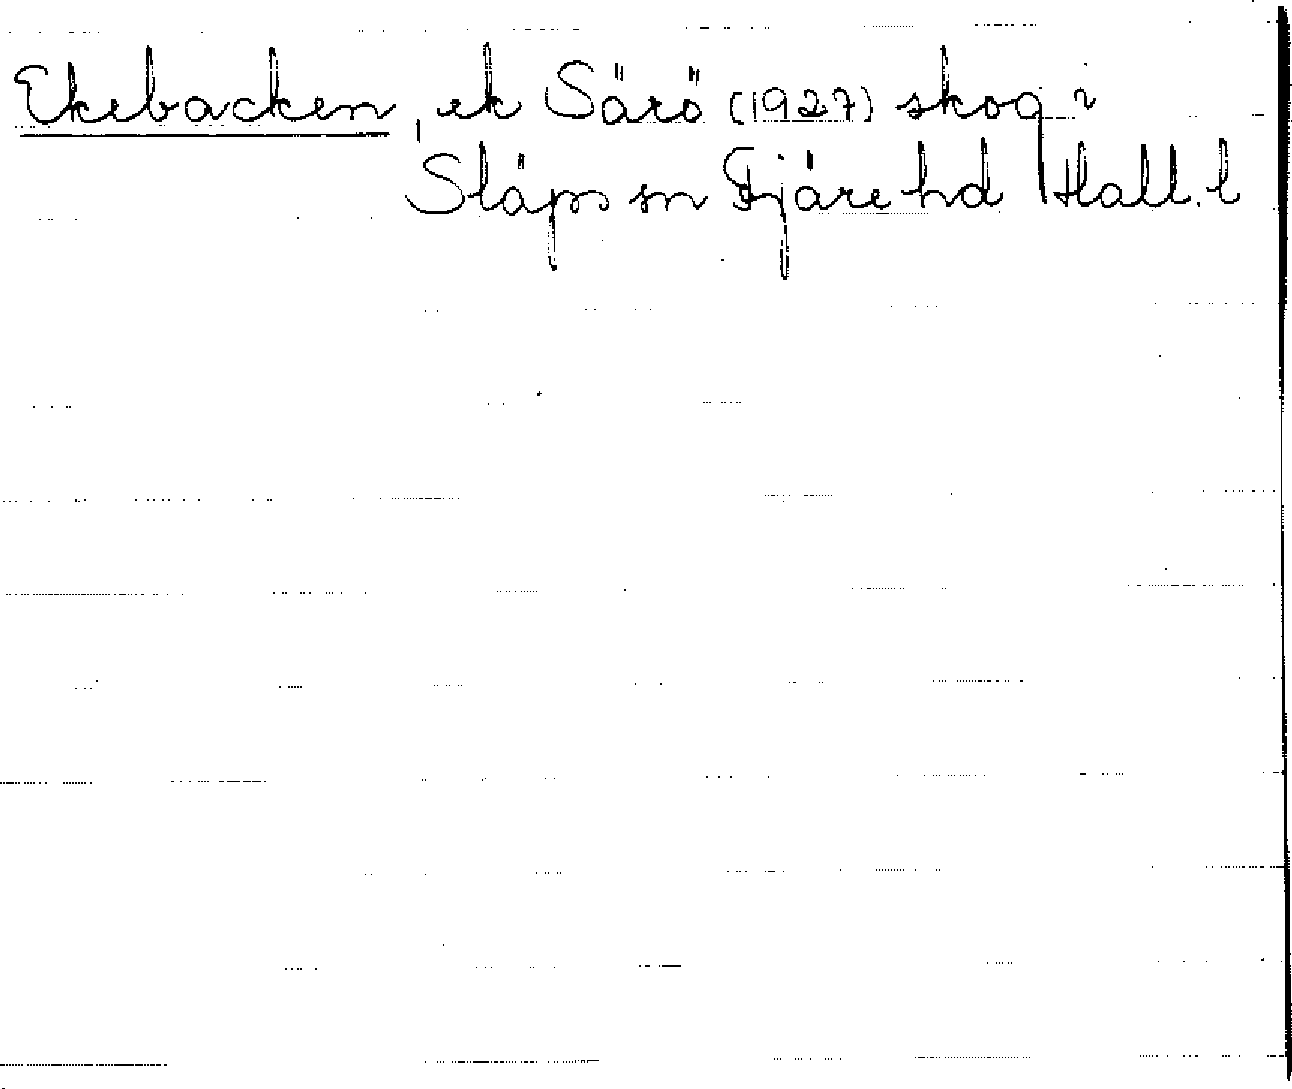 Ekebacken, ek Särö (1927) skog i
Släps sn Fjäre hd Hall. l